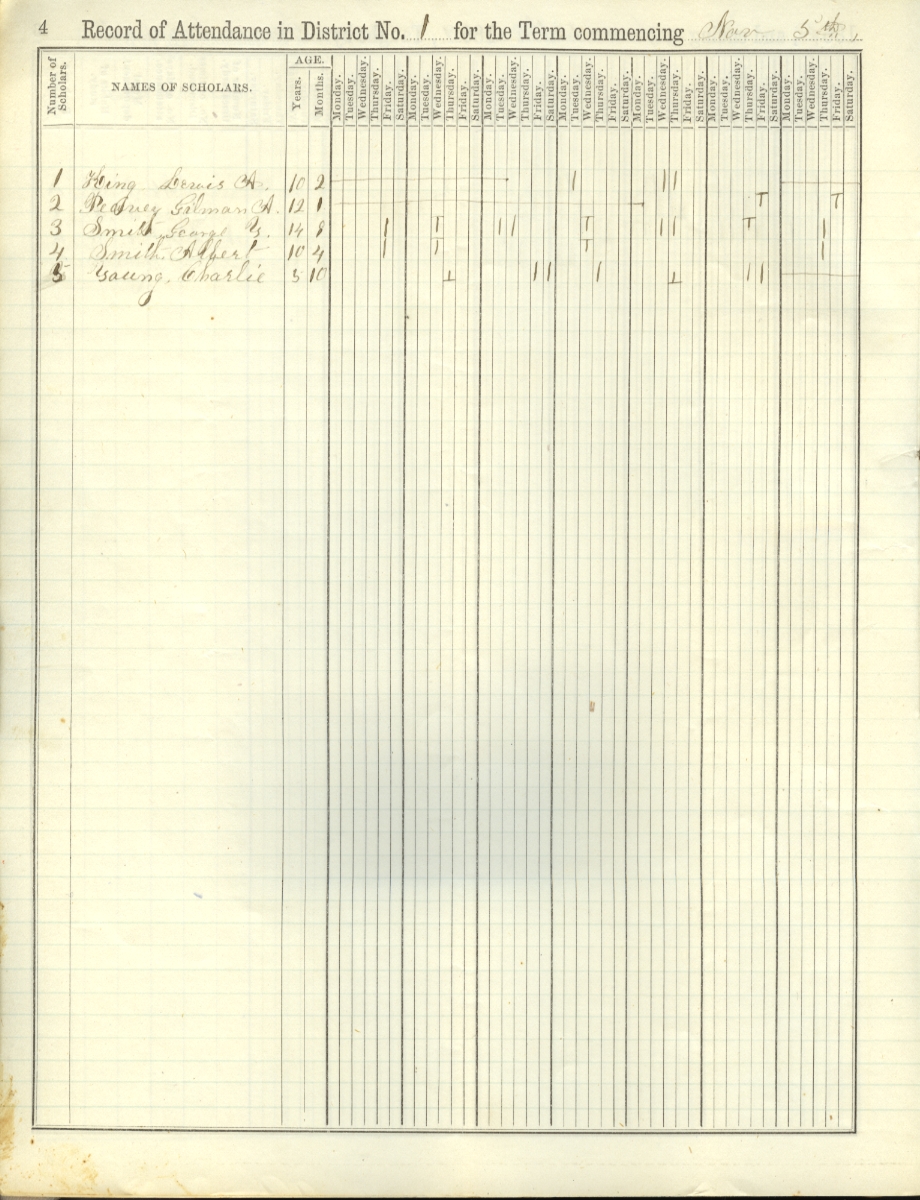 4 Record of Attendance in District No. 1 for the Term commencing Nov 5th,
Number of Scholars. NAMES OF SCHOLARS. AGE. Years. Months. Monday. Tuesday. Wednesday. Thursday. Friday. Saturday. Monday. Tuesday. Wednesday. Thursday. Friday. Saturday. Monday. Tuesday. Wednesday. Thursday. Friday. Saturday. Monday. Tuesday. Wednesday. Thursday. Friday. Saturday. Monday. Tuesday. Wednesday. Thursday. Friday. Saturday. Monday. Tuesday. Wednesday. Thursday. Friday. Saturday. Monday. Tuesday. Wednesday. Thursday. Friday. Saturday.
1 King Lewis A. 10 2
2 Gilman A. 12 1
3 Smith, George Y. 14 8
4 Smith, Albert 10 4
5 Young, Charlie 5 10